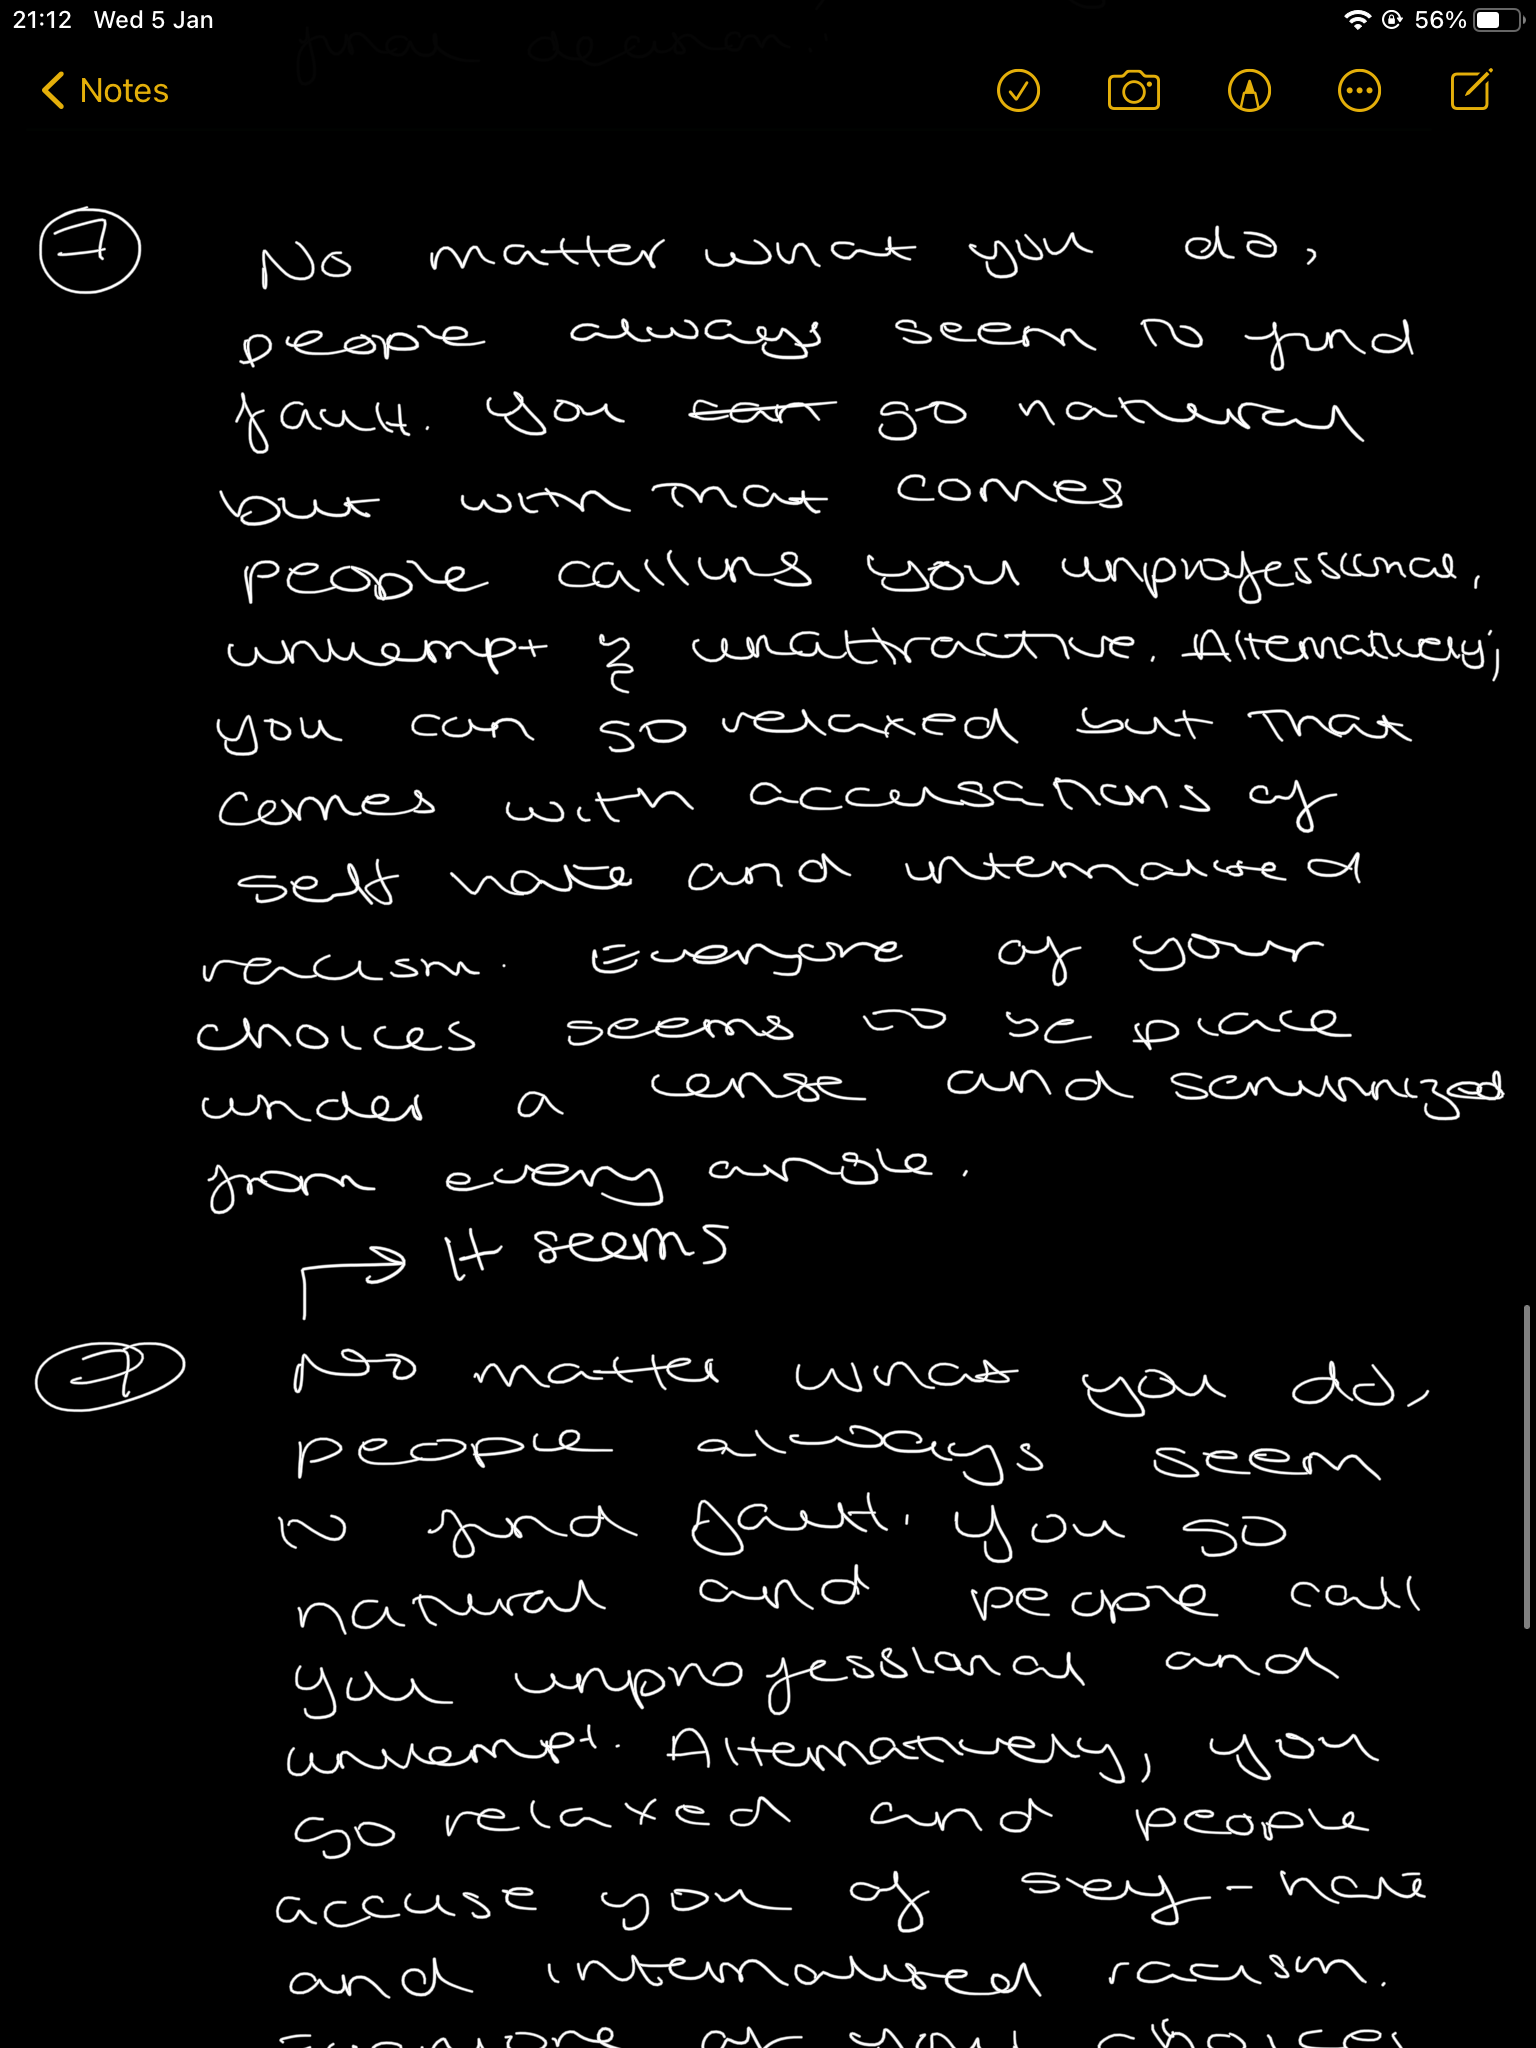 21:12 Wed 5 Jan 56%
final decision.
Notes
7
No matter what you do,
people always seem to find
fault. You can go natural
but with that comes
people calling you unprofessional,
unkempt & unattractive. Alternatively,
you can go relaxed but that
comes with accusations of
self hate and internalised
racism. Everyone of your
choices seems to be place
under a lense and scrutinized
from every angle.
→ It seems
7
No matter what you do,
people always seem
to find fault. You go
natural and people call
you unprofessional and
unkempt. Alternatively, you
go relaxed and people
accuse you of self-hate
and internalised racism.
Everyone of your choices